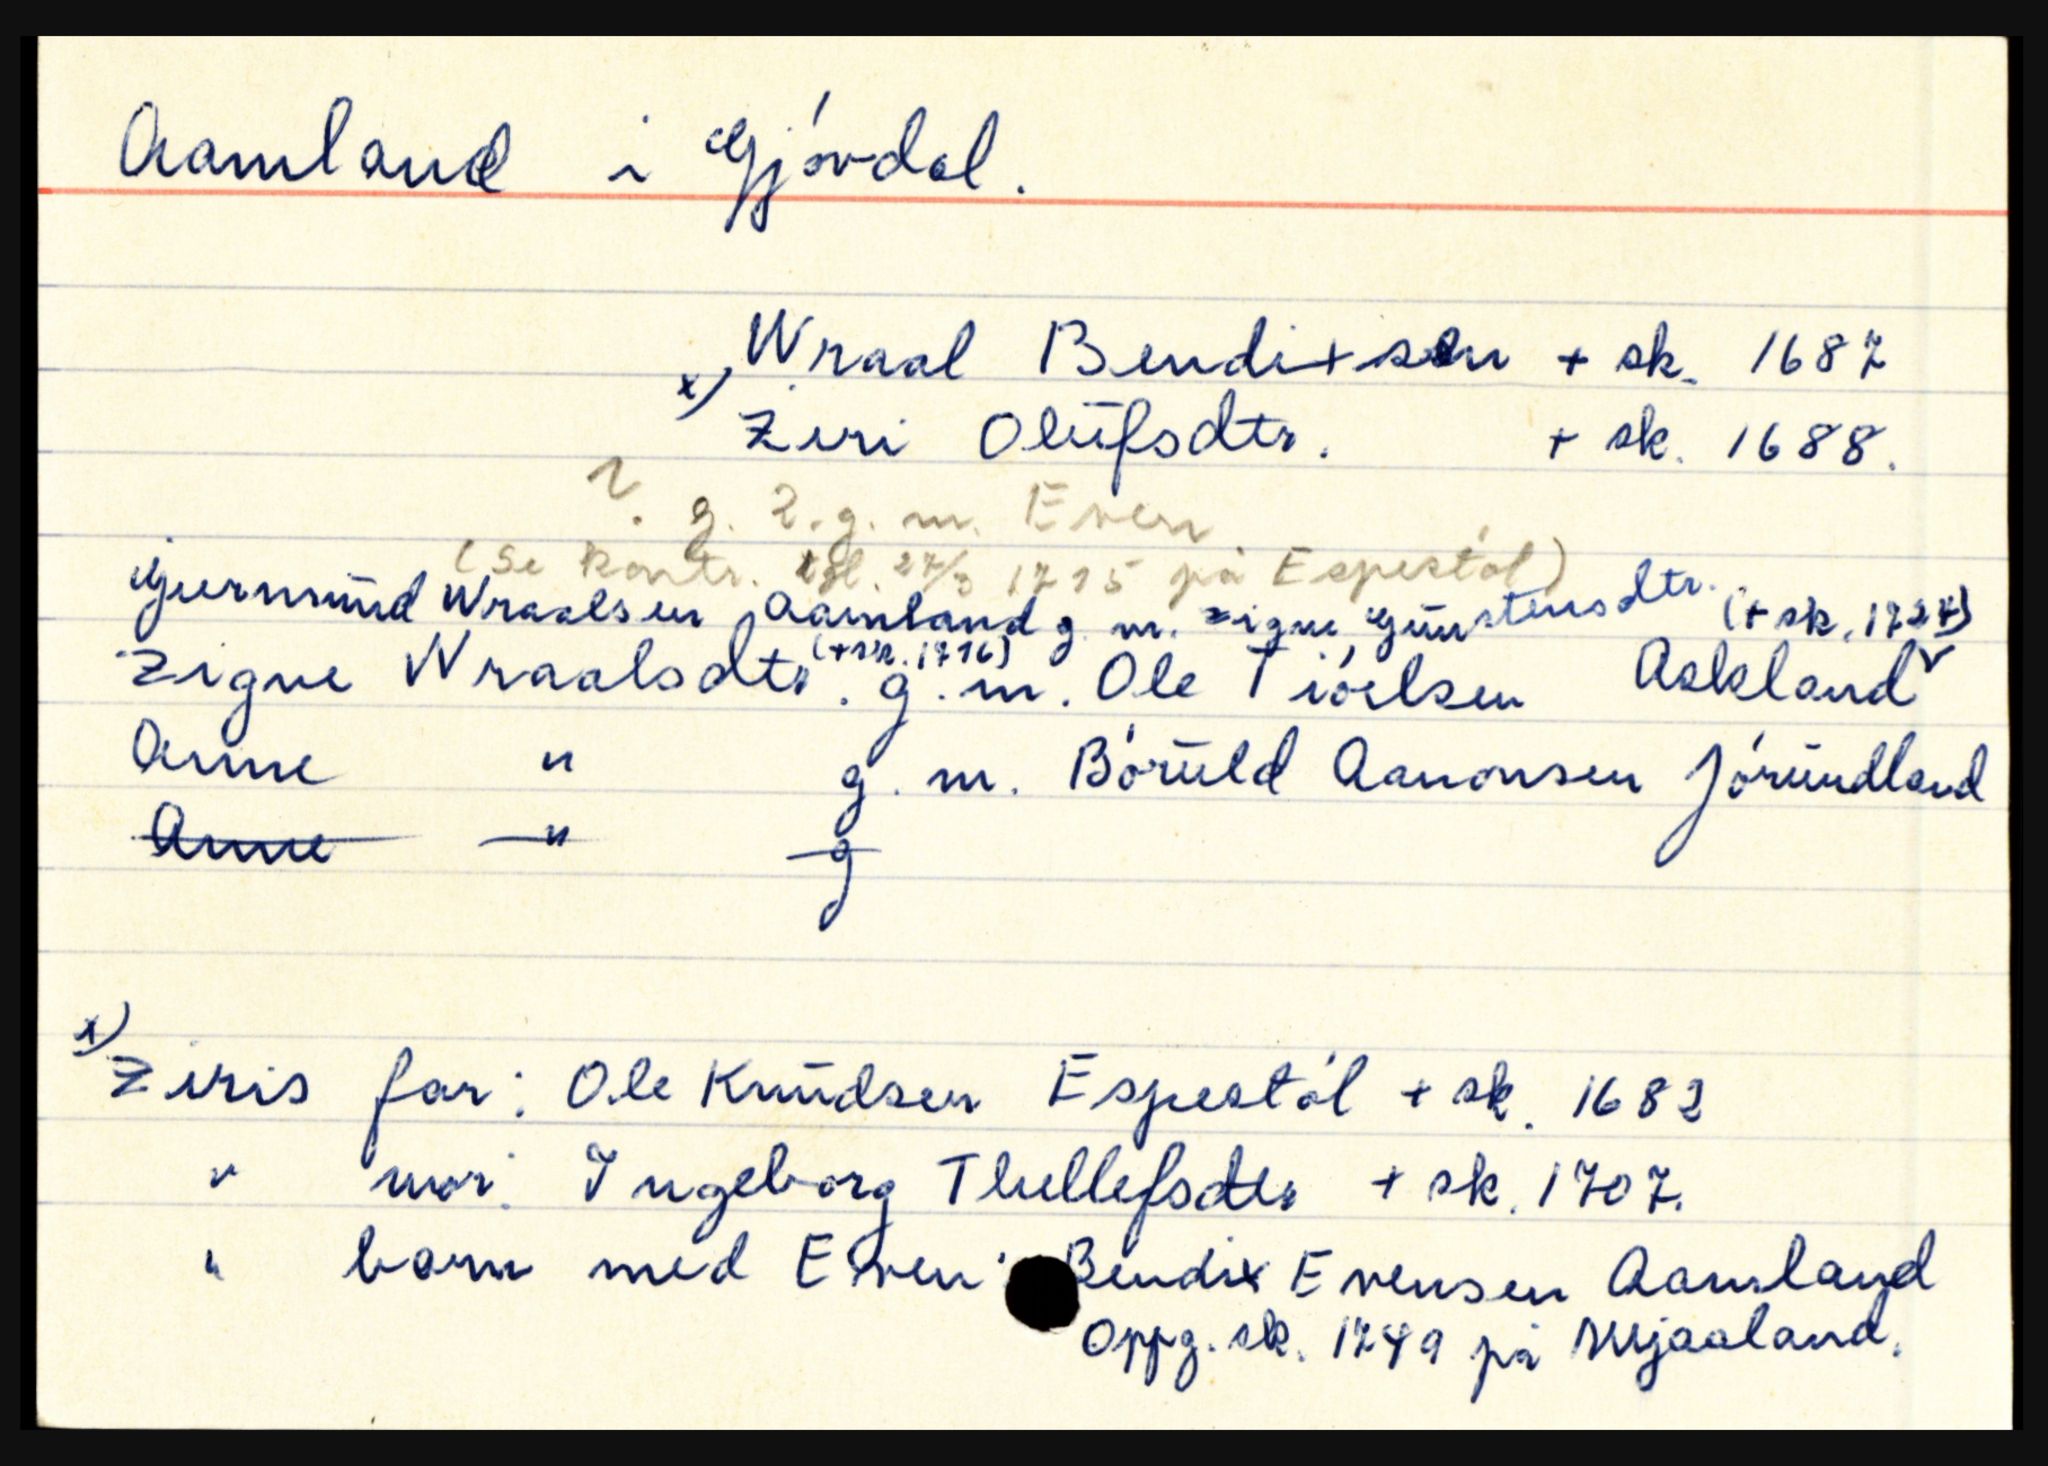 Aamland i Gjóvdal.
Wraal Bendixsen + sk. 1687
x) Ziri Olüfsdtr. + sk. 1688.
? g. 2. g. m. Even
(se kontr. tgl. 27/3 1715 på Espestól)
Gjermünd Wraalsen Aamland g. m. Zigne Güüstensdtr. (+ sk. 1727)
Zigne Wraalsdtr. (+ sk. 1716) g. m. Ole Tióelsen Askland v
Anne " g. m. Bórüld Aanonsen Jóründland
Anne " g
x) Ziris far: Ole Knüdsen Espestól + sk. 1682
" mor: Ingeborg Thellefsdtr + sk. 1707.
" barn med Even: Bendix Evensen Aamland
Oppg. sk. 1749 på Mjaaland.